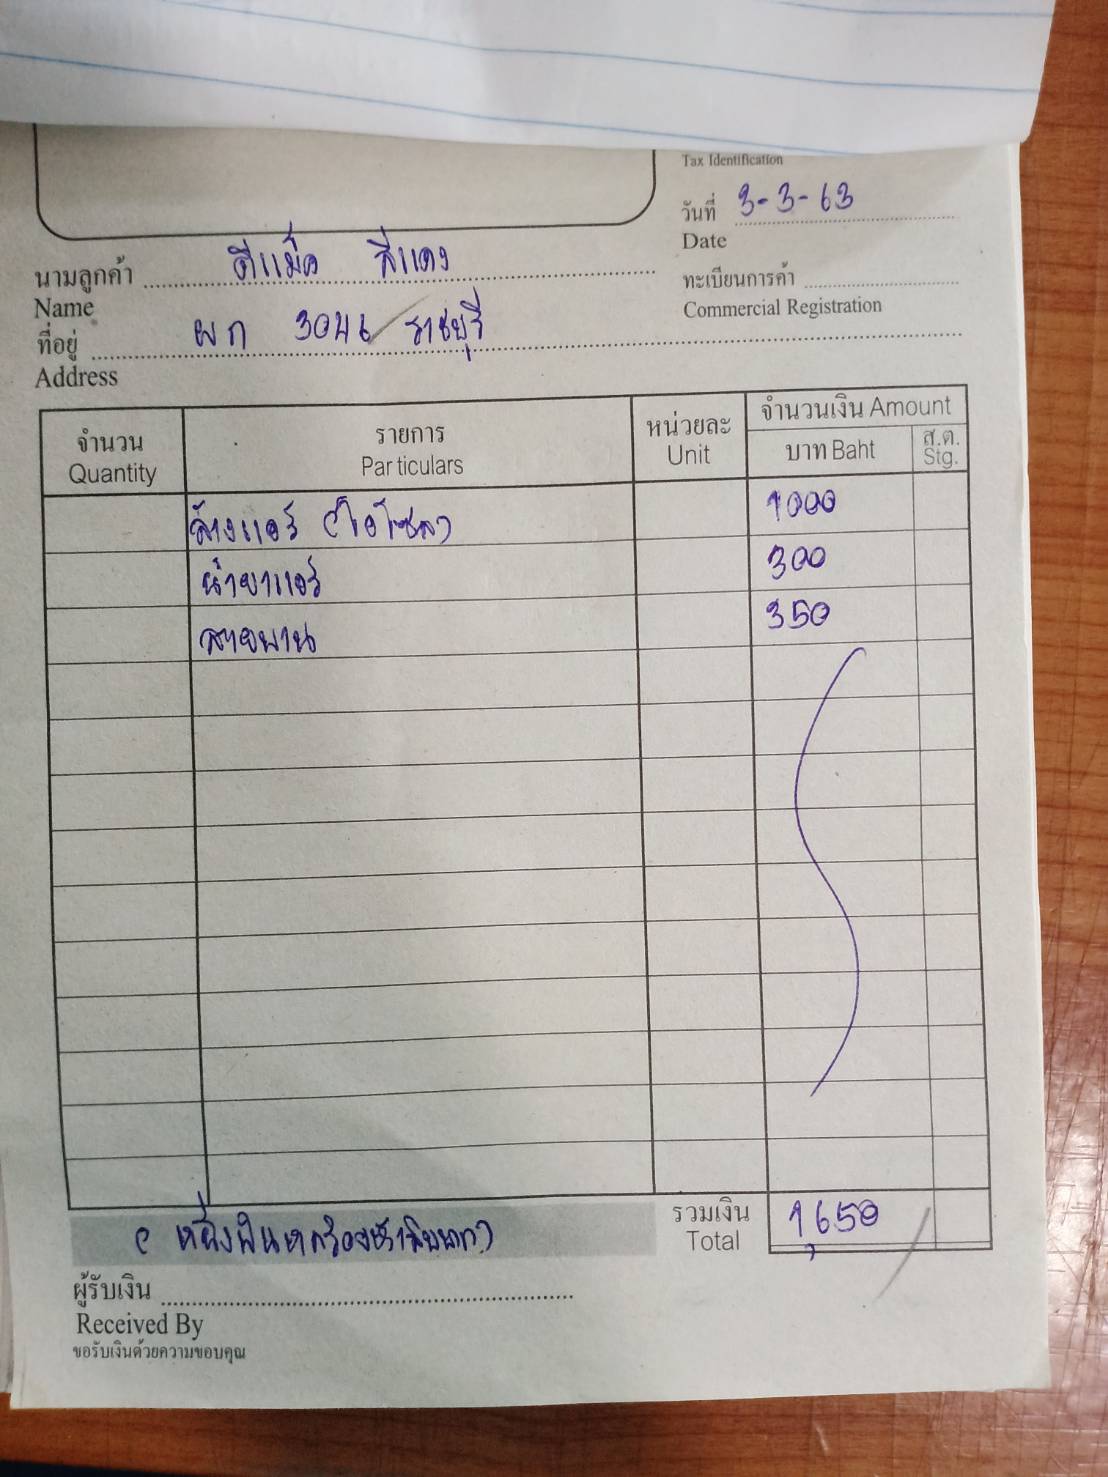 Tax Identification
วันที่ 3-3-63
Date
นามลูกค้า ดีแม็ค สีแดง
Name
ทะเบียนการค้า
Commercial Registration
ที่อยู่ ผก 3046 ราชบุรี
Address
จำนวน รายการ หน่วยละ จำนวนเงิน Amount
Quantity Particulars Unit บาท Baht ส.ต. Stg.
ล้างแอร์ (โอโซล) 1000
น้ำยาแอร์ 300
สายพาน 350
(หนึ่งพันหกร้อยห้าสิบบาท) รวมเงิน 1,650
Total
ผู้รับเงิน
Received By
ขอรับเงินด้วยความขอบคุณ